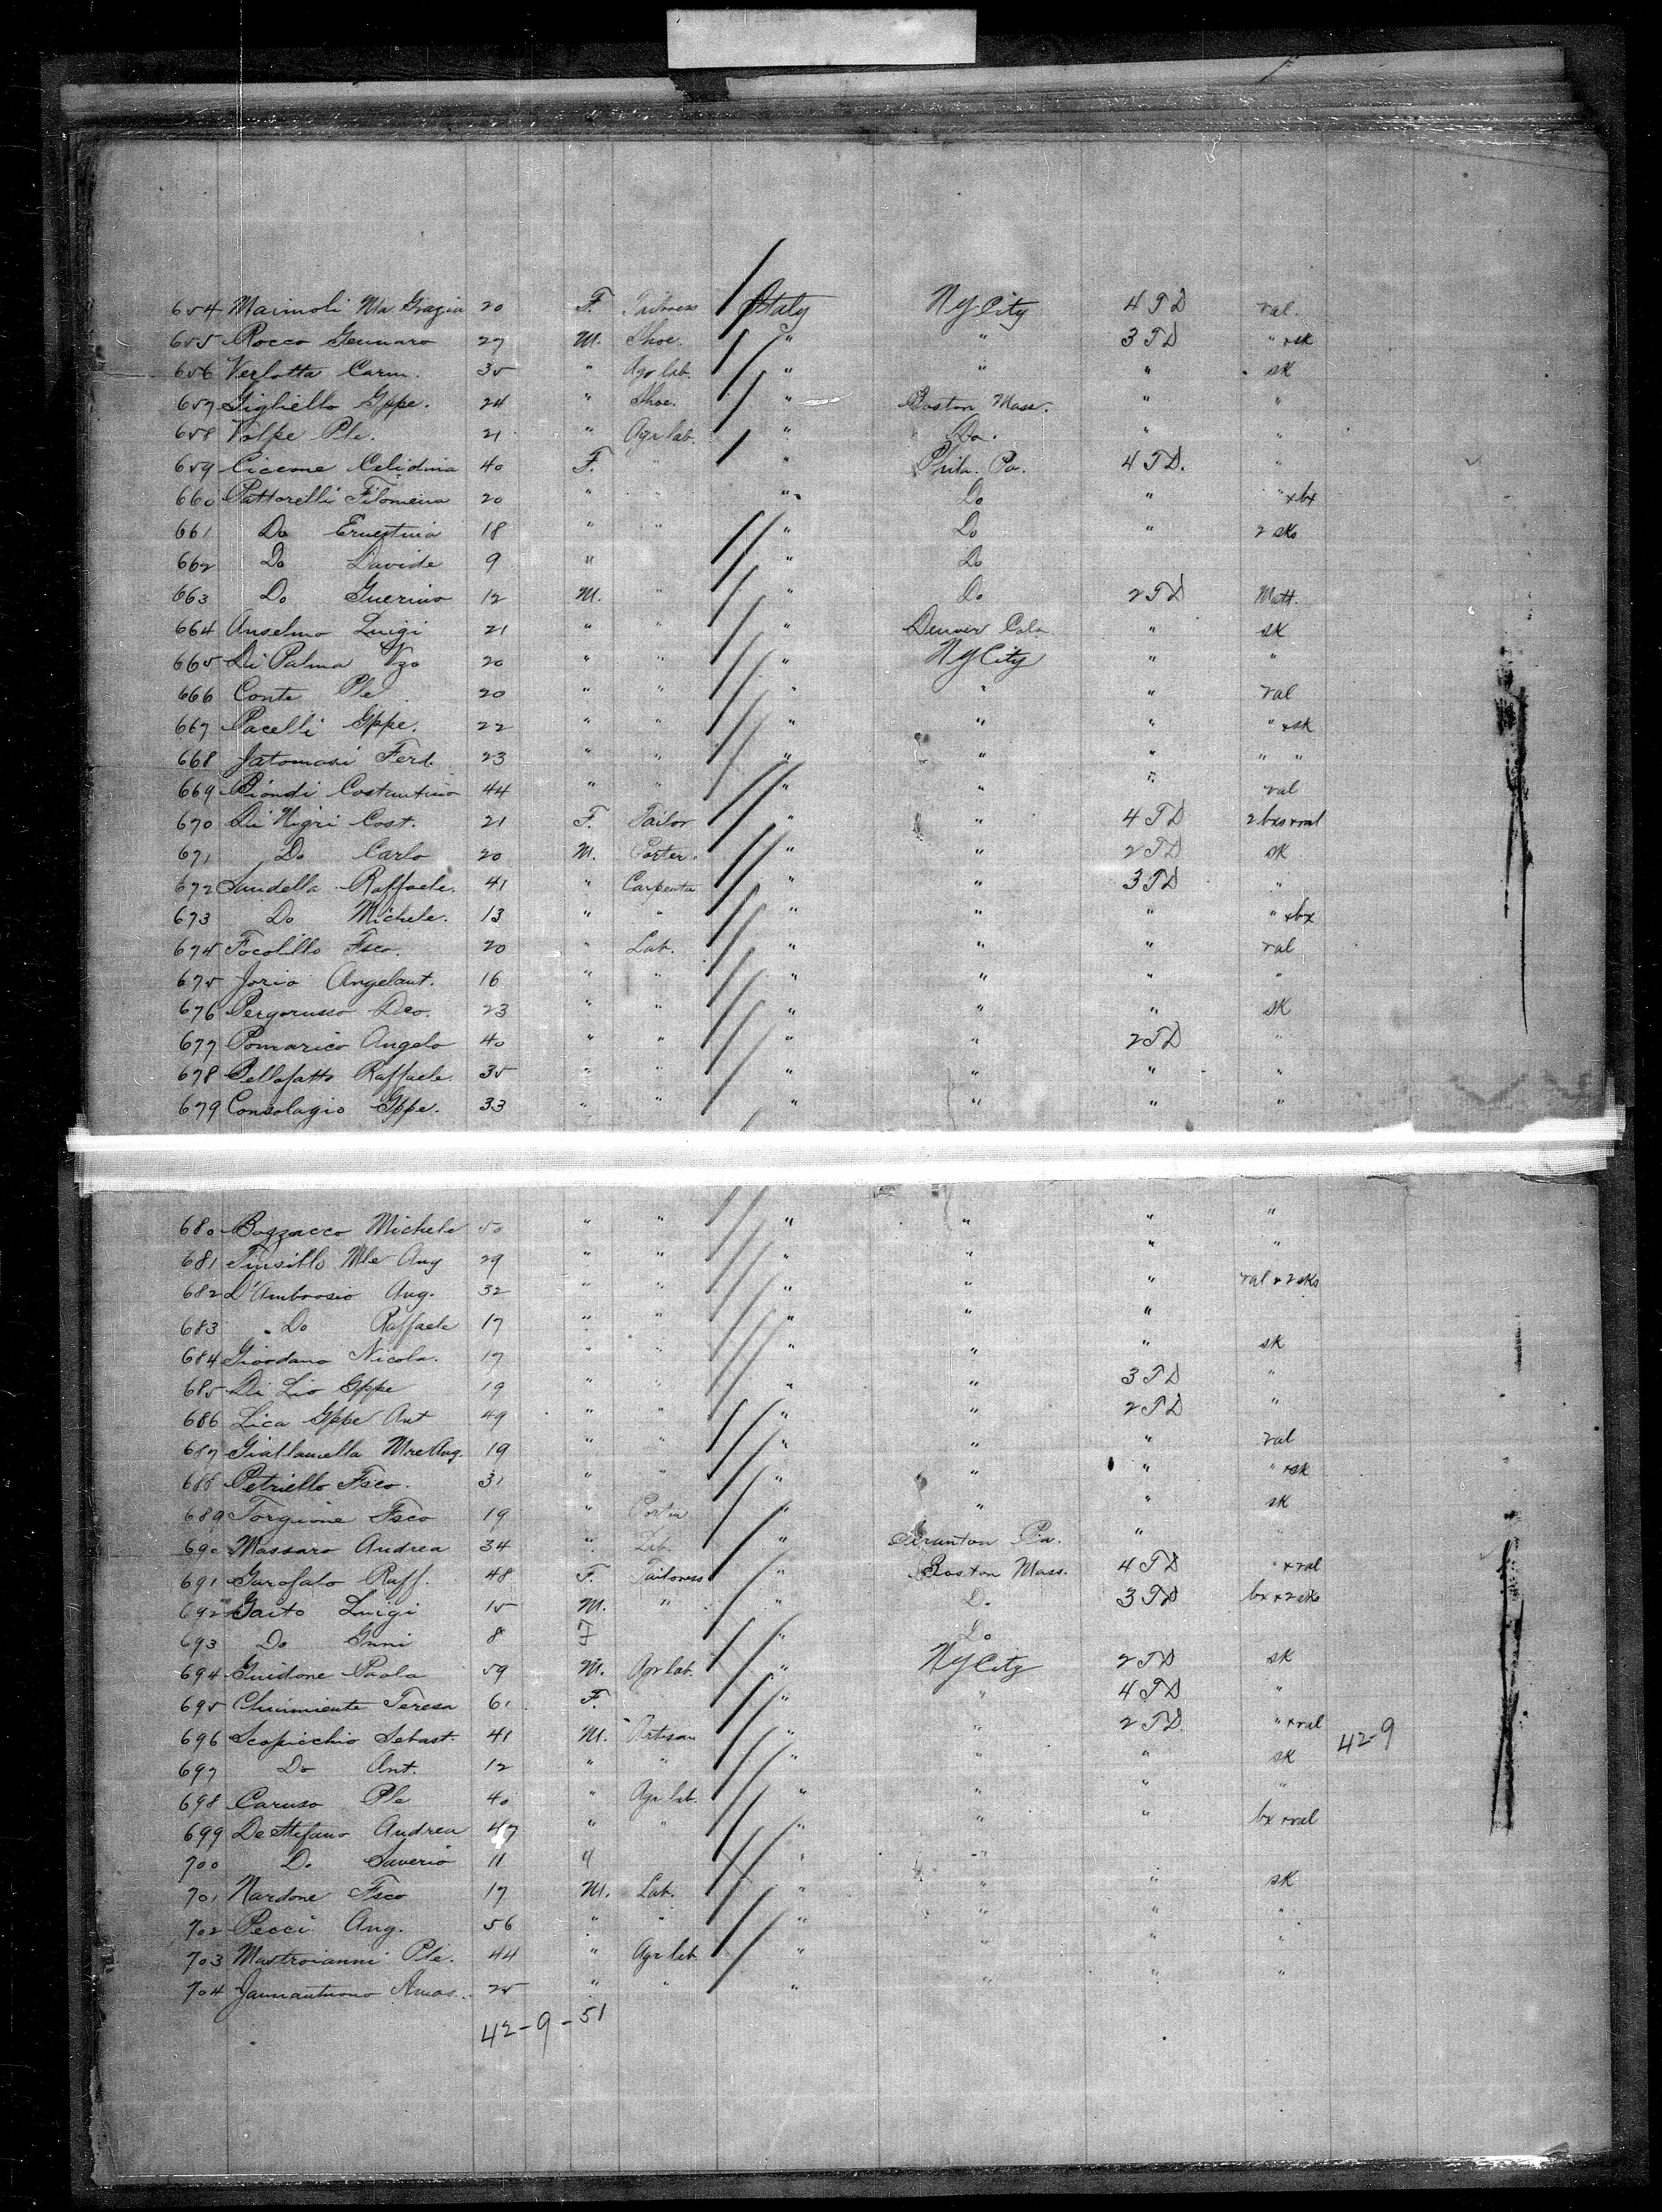 654 Maimoli Ma Grazia 20 F. Tailoress Italy NY City 4 TD val.
655 Rocco Gennaro 27 M. Shoe. " " 3 TD " + sk
656 Verlotta Carm. 35 " Agr lab. " " " sk
657 Gigliello Gppe. 24 " Shoe. " Boston Mass. " "
658 Volpe Ple. 21 " Agr lab. " Do. " "
659 Ciccone Celidina 40 F. " " Phila. Pa. 4 TD. "
660 Pattorelli Filomena 20 " " " Do " " + bx
661 Do Ernestina 18 " " " Do " 2 sks
662 Do Davide 9 " " Do
663 Do Guerino 12 M. " " Do 2 TD Matt.
664 Anselmo Luigi 21 " " " Denver Colo " sk
665 Di Palma Vzo 20 " " " NY City " "
666 Conte Ple 20 " " " " " val
667 Pacelli Gppe. 22 " " " " " " + sk
668 Jatomasi Ferd. 23 " " " " " " "
669 Biondi Costantino 44 " " " " " val
670 Di Nigri Cost. 21 F. Tailor " " 4 TD 2 bxs + val
671 Do Carlo 20 M. Porter. " " 2 TD sk
672 Sandella Raffaele. 41 " Carpenter " " 3 TD "
673 Do Michele. 13 " " " " " " + bx
674 Focolillo Fsco. 20 " Lab. " " " val
675 Jorio Angelant. 16 " " " " " "
676 Pergorusso Deo. 23 " " " " " sk
677 Pomarico Angelo 40 " " " " 2 TD "
678 Pellafatto Raffaele. 35 " " " " " "
679 Consolagio Gppe. 33 " " " " " "
680 Bozzacco Michele 50 " " " " " "
681 Tinsillo Mle Ang 29 " " " " " "
682 D'Ambrosio Ang. 32 " " " " " val + 2 sks
683 Do Raffaele 17 " " " " "
684 Giordano Nicola. 17 " " " " " sk
685 Di Lio Gppe 19 " " " " 3 TD "
686 Lica Gppe Ant 49 " " " " 2 TD "
687 Giallanella Mre Ang. 19 " " " " " val
688 Petriello Fsco. 31 " " " " " " + sk
689 Torgione Fsco 19 " Porter " " " sk
690 Massaro Andrea 34 " Lab. " Scranton Pa. " "
691 Garofalo Raff. 48 F. Tailoress " Boston Mass. 4 TD " + val
692 Gaito Luigi 15 M. " " Do 3 TD bx + 2 sks
693 Do Gnni 8 F " Do
694 Guidone Paola 59 M. Agr lab. " NY City 2 TD sk
695 Chiumiento Teresa 61 F. " " " 4 TD "
696 Scopicchio Sebast. 41 M. Artisan " " 2 TD. " + val 42-9
697 Do Ant. 12 " " " " " sk
698 Caruso Ple 40 " Agr lab. " " " "
699 De Stefano Andrea 47 " " " " " bx + val
700 Do Saverio 11 " " "
701 Nardone Fsco 17 M. Lab. " " " sk
702 Pecci Ang. 56 " " " " " "
703 Mastroianni Ple. 44 " Agr lab " " " "
704 Jannantuono Amos. 25 " " " " " "
42-9-51